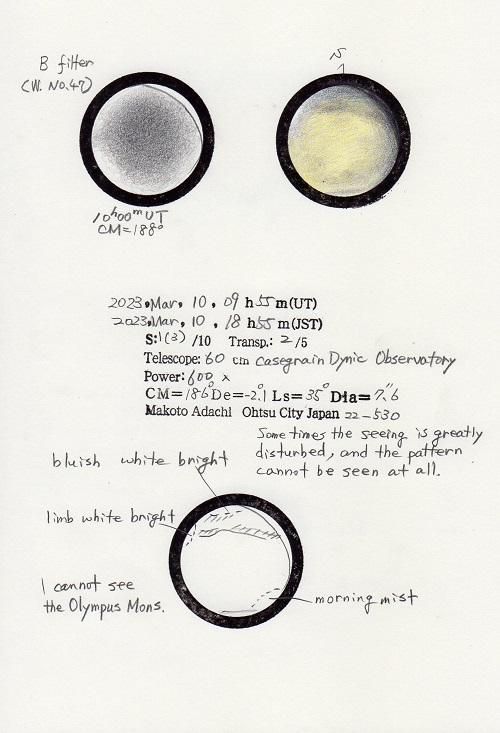 B filter
(W. No.47)
S
10h00mUT
CM=188°
2023.Mar. 10, 09 h 55 m(UT)
2023.Mar. 10, 18 h 55 m(JST)
S:1(3) /10 Transp.: 2 /5
Telescope: 60 cm casegrain Dynic Observatory
Power: 600 x
CM=186° De=-2.°1 Ls=35° Dia=7."6
Makoto Adachi Ohtsu City Japan 22-530
Some times the seeing is greatly
disturbed, and the pattern
cannot be seen at all.
bluish white bright
limb white bright
I cannot see
the Olympus Mons.
morning mist